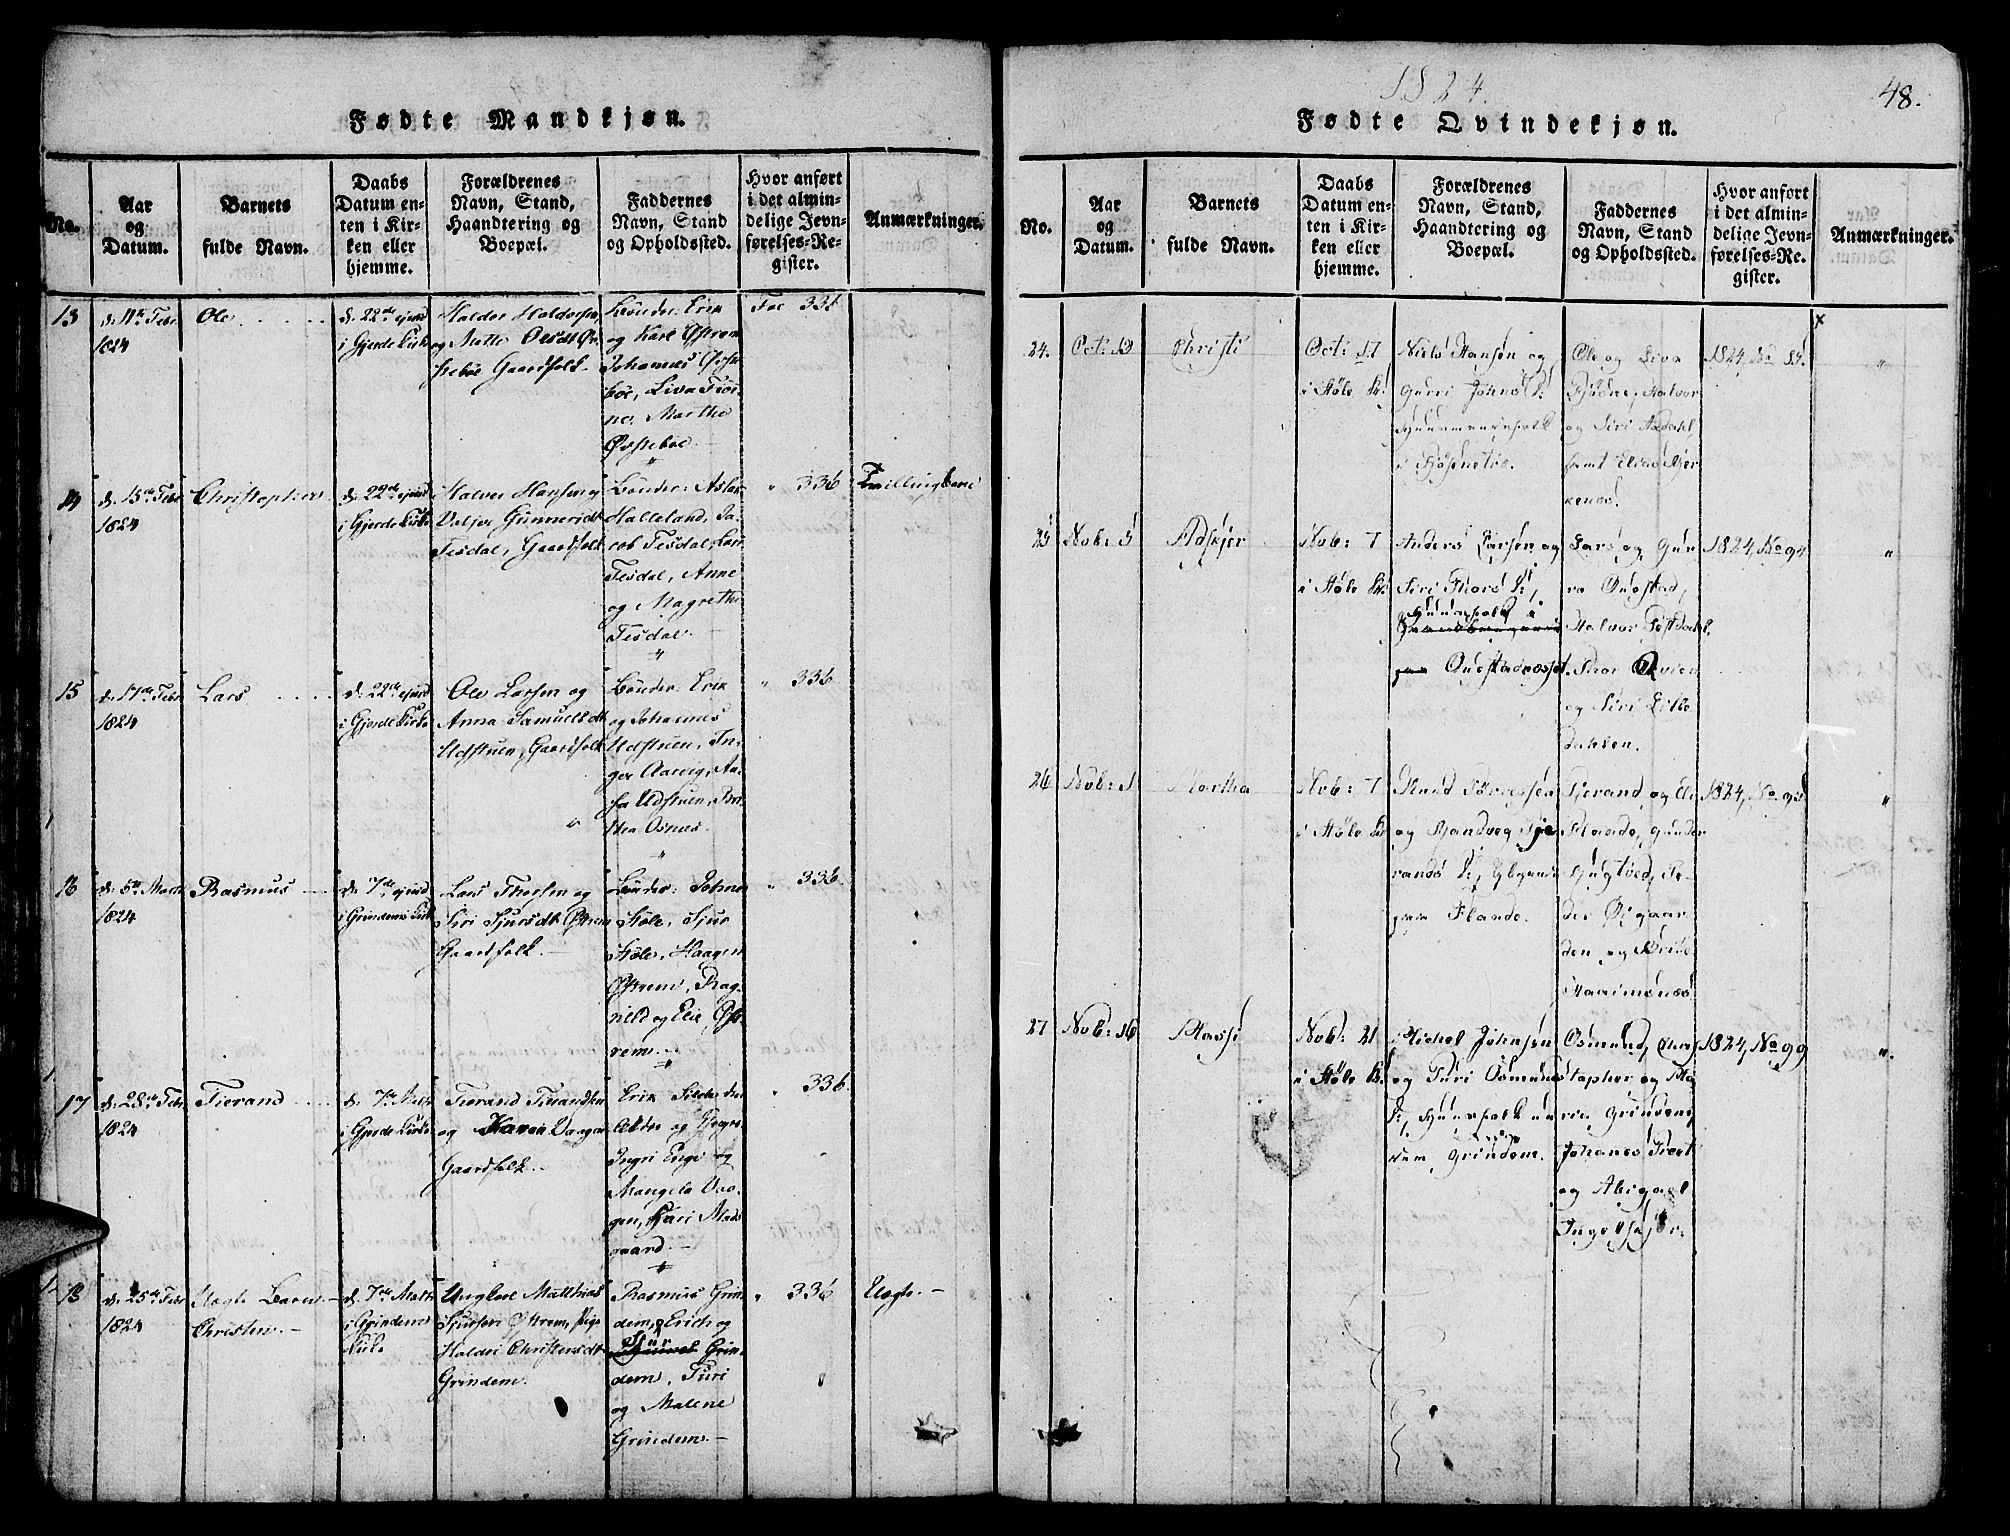 1824.
48.
Fødte Mandkjøn.
No.
Aar
og
Datum.
Barnets
fulde Navn.
Daabs
Datum en-
ten i Kir-
ken eller
hjemme.
Forældrenes
Navn, Stand,
Haandtering og
Boepæl.
Faddernes
Navn, Stand
og Opholdssted.
Hvor anført
i det almin-
delige Jevn-
førelses-Re-
gister.
Anmærkninger.
13
d. 11te Febr.
1824
Ole
d. 22de ejusd
i Gjerde Kirke
Halder Haldorsen
og Mette Olesdt Øv-
stebøe Gaardfolk
Bønder: Erik
og Kari Østrem
Johannes Øvste-
bøe, Liva Fiøs-
ne, Marthe
Øvstebøe.
Fol 336
14
d. 15de Febr
1824
Christopher
d. 22de ejusd
i Gjerde Kirke
Halver Hansen og
Valjer Gunnersdt
Tesdal, Gaardfolk
Bønder: Aslak
Halleland, Ja-
cob Tesdal, Lars
Tesdal, Anne
og Magrethe
Tesdal.
" 336
Tvillingbarn
15
d. 17de Febr
1824
Lars
d. 22de ejusd
i Gjerde Kirke
Ole Larsen og
Anna Samuelsdt
Udstuen, Gaardfolk
Bønder: Erik
og Johannes
Udstuen, In-
ger Aarvig, Aa-
sa Udstuen, Bri-
tha Osnes.
" 336
16
d. 5te Marti
1824
Rasmus
d. 7de ejusd
i Grindems Kirke
Lars Thorsen og
Siri Sjursdt Østrem
Gaardfolk
Bønder: Johnes
Støle, Sjur
Støle, Haagen
Østrem, Rag-
nild og Elie Øst-
rem.
" 336
17
d. 28de Febr
1824
Tierand
d. 7de Marti
i Gjerde Kirke
Tierand Tierandsen
og Karen Vaagen
Gaardfolk
Erik
og
Ingri Enge og
Mangela Vaa-
gen, Kari Mads-
gaard.
" 336
18
d. 25de Febr
1824
Uægte Barn
Christen
d. 7de Marti
i Grindems
Kirke
Ungkarl Matthias
Sjursen Østrem, Pige
Haldri Christensdt
Grindem.
Rasmus Grin-
dem, Erich og
Sjur Grin-
dem, Turi
og Malene
Grindem
" 336
Uægte
Fødte Qvindekjøn.
No.
Aar
og
Datum.
Barnets
fulde Navn.
Daabs
Datum en-
ten i Kir-
ken eller
hjemme.
Forældrenes
Navn, Stand,
Haandtering og
Boepæl.
Faddernes
Navn, Stand
og Opholdssted.
Hvor anført
i det almin-
delige Jevn-
førelses-Re-
gister.
Anmærkninger.
24.
Oct: 13
Christi
Oct: 17
i Støle K:
Niels Hansøn og
Gurri Johns D:
Huusmandsfolk
i Fjøsnetræ.
Ole og Liva
Fjøsne, Halvor
og Siri Aadahl,
samt Elias Kjer
kenes.
1824, No 85.
x
"
25
Nob: 5
Adskjer
Nob: 7
i Støle K:
Anders Larsøn og
Siri Thors D:,
Huusfolk i
Ongstadnesset.
Lars og Gun
ra Ongstad,
Halvor Testdahl,
Thor Qvien
og Siri Lille
dahlen.
1824, No 94
"
26
Nob: 1
Martha
Nob: 7
i Støle K:
Knud Sørensen
og Randveg Tje
rands D:,
Flaade.
Tjerand og Eli
Flaade, Gunder
Fjugtved, Pe-
der Øigaar
den og Brithe
Haaimsnes
1824, No 95
"
27
Nob: 16
Massi
Nob: 21
i Støle K:
Michel Johnsøn
og Turi Osmunds
D:, Huusfolk un
dem, Grindem.
Osmund, Chri
stopher og Ma
ria Grindem,
Johanes Træet
og Abigael
Ingelsgjer.
1824, No 99
"